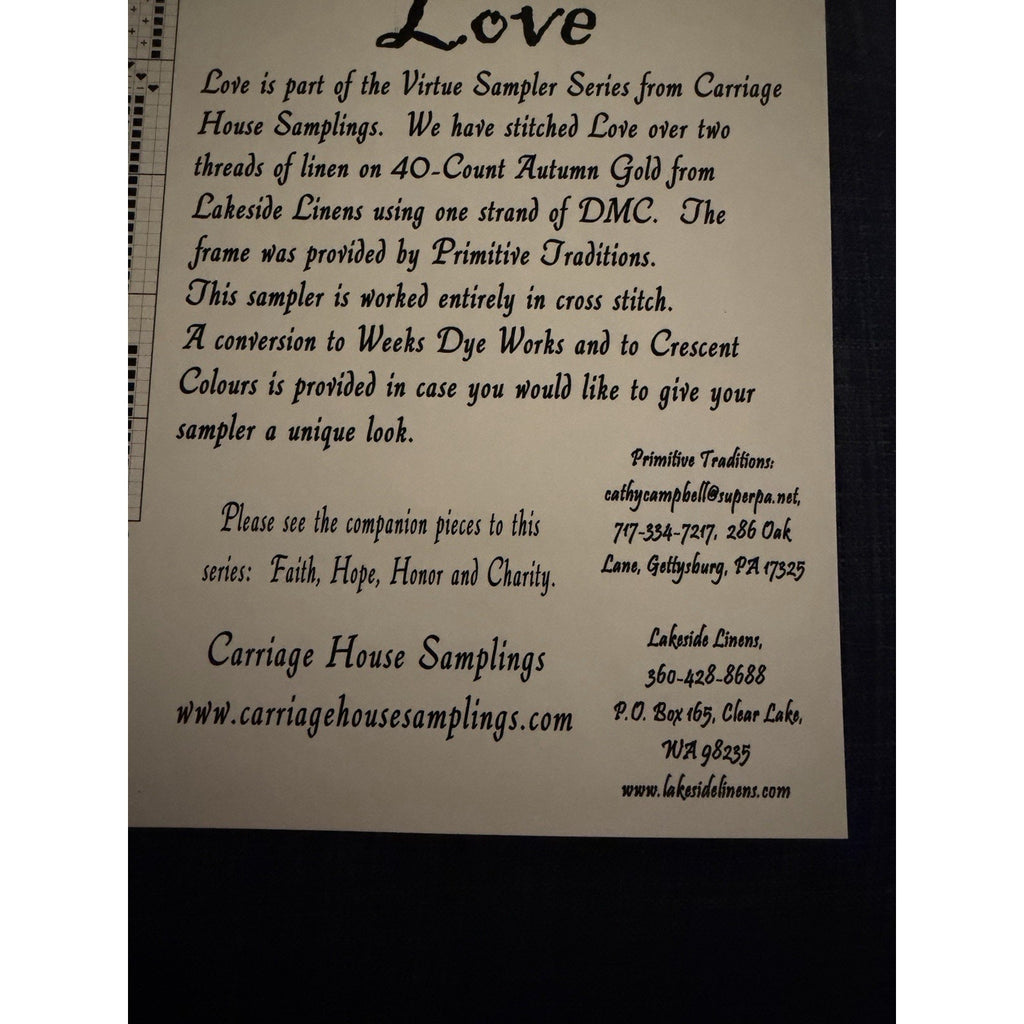 Love
Love is part of the Virtue Sampler Series from Carriage
House Samplings. We have stitched Love over two
threads of linen on 40-Count Autumn Gold from
Lakeside Linens using one strand of DMC. The
frame was provided by Primitive Traditions.
This sampler is worked entirely in cross stitch.
A conversion to Weeks Dye Works and to Crescent
Colours is provided in case you would like to give your
sampler a unique look.
Please see the companion pieces to this
series: Faith, Hope, Honor and Charity.
Carriage House Samplings
www.carriagehousesamplings.com
Primitive Traditions:
cathycampbell@superpa.net,
717-334-7217, 286 Oak
Lane, Gettysburg, PA 17325
Lakeside Linens,
360-428-8688
P.O. Box 165, Clear Lake,
WA 98235
www.lakesidelinens.com